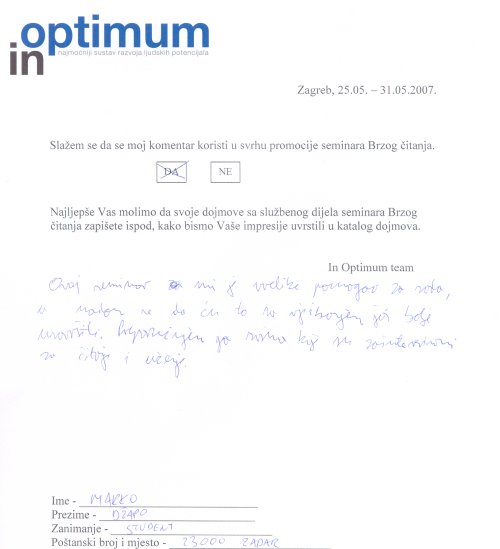 in optimum
najmoćniji sustav razvoja ljudskih potencijala
Zagreb, 25.05. – 31.05.2007.
Slažem se da se moj komentar koristi u svrhu promocije seminara Brzog čitanja.
DA NE
Najljepše Vas molimo da svoje dojmove sa službenog dijela seminara Brzog
čitanja zapišete ispod, kako bismo Vaše impresije uvrstili u katalog dojmova.
In Optimum team
Ovaj seminar mi je uvelike pomogao za
u nadam se da ću to još bolje
usavršiti. Preporučujem ga svima koji su zainteresirani
za i učenje.
Ime - MARKO
Prezime - DŽAPO
Zanimanje - STUDENT
Poštanski broj i mjesto - 23000 ZADAR